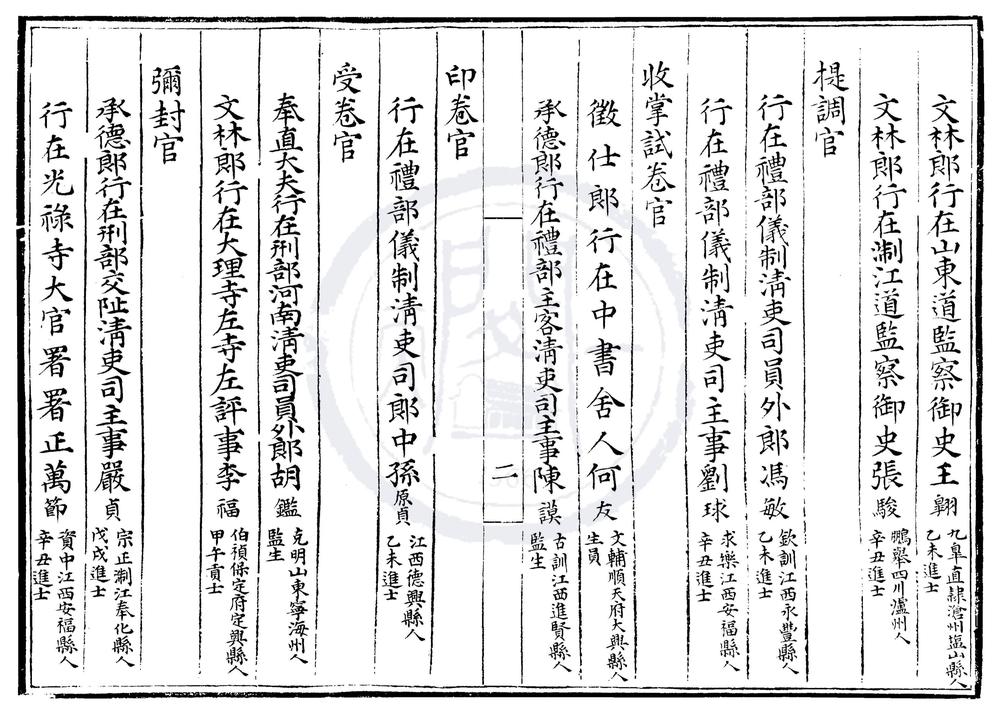 文林郎行在山東道監察御史王翺 九臯直隸滄州塩山縣人
乙未進士
文林郎行在淛江道監察御史張駿 鵬舉四川瀘州人
辛丑進士
提調官
行在禮部儀制淸吏司員外郎馮敏 欽訓江西永豐縣人
乙未進士
行在禮部儀制淸吏司主事劉球 求樂江西安福縣人
辛丑進士
收掌試卷官
徵仕郎行在中書舍人何友 文輔順天府大興縣人
生員
承德郎行在禮部主客淸吏司主事陳謨 古訓江西進賢縣人
監生
二
印卷官
行在禮部儀制淸吏司郎中孫原貞 江西德興縣人
乙未進士
受卷官
奉直大夫行在刑部河南淸吏司員外郎胡鑑 克明山東寧海州人
監生
文林郎行在大理寺左寺左評事李福 伯禎保定府定興縣人
甲午貢士
彌封官
承德郎行在刑部交阯淸吏司主事嚴貞 宗正淛江奉化縣人
戊戌進士
行在光祿寺大官署署正萬節 資中江西安福縣人
辛丑進士